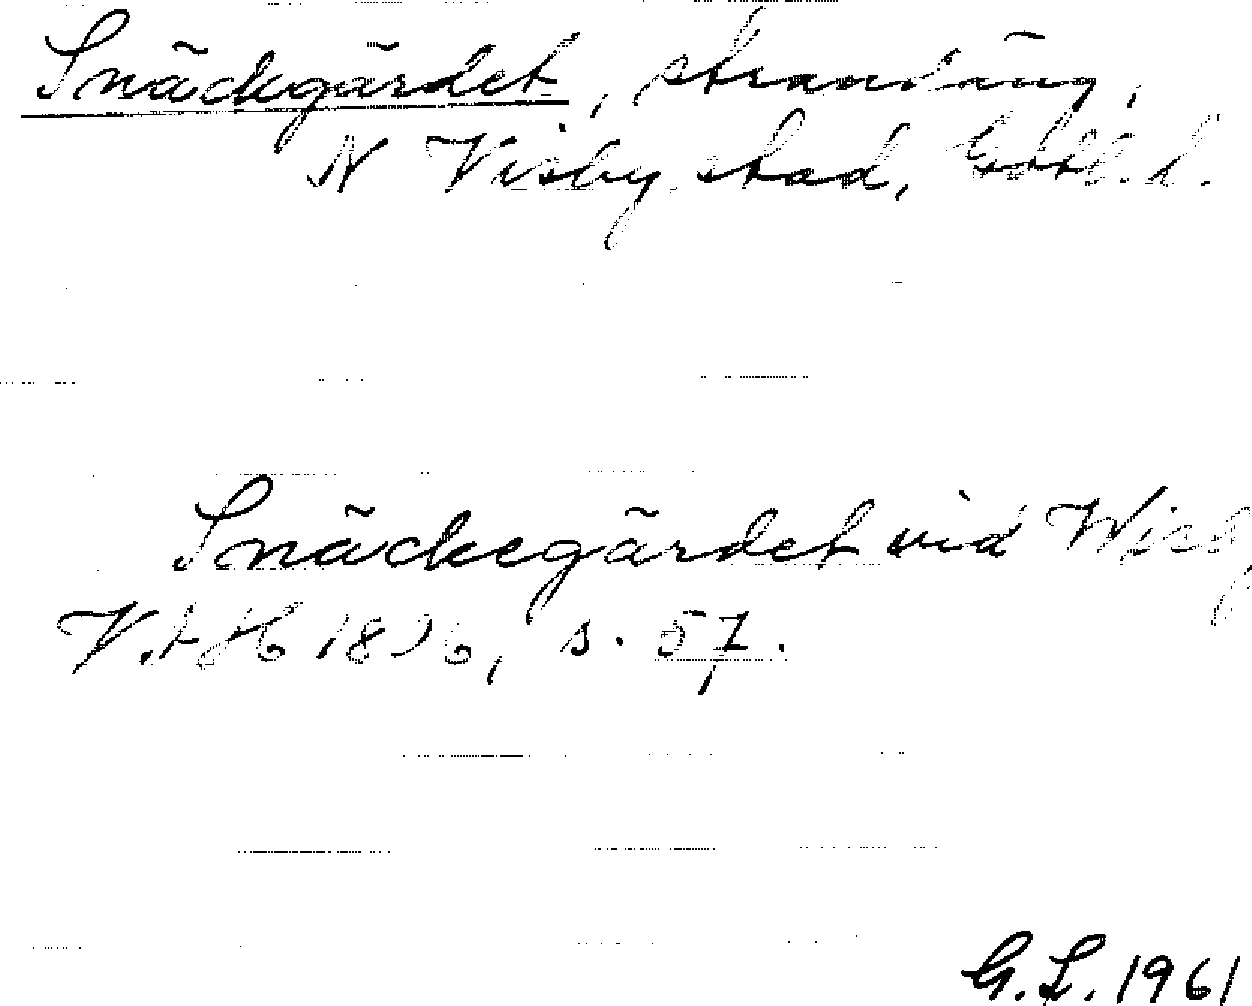 Snäckgärdet, strandäng,
N Visby stad, Gotl. l.
Snäckegärdet vid Wisby
V.A.H 1826, s. 57.
G.L. 1961